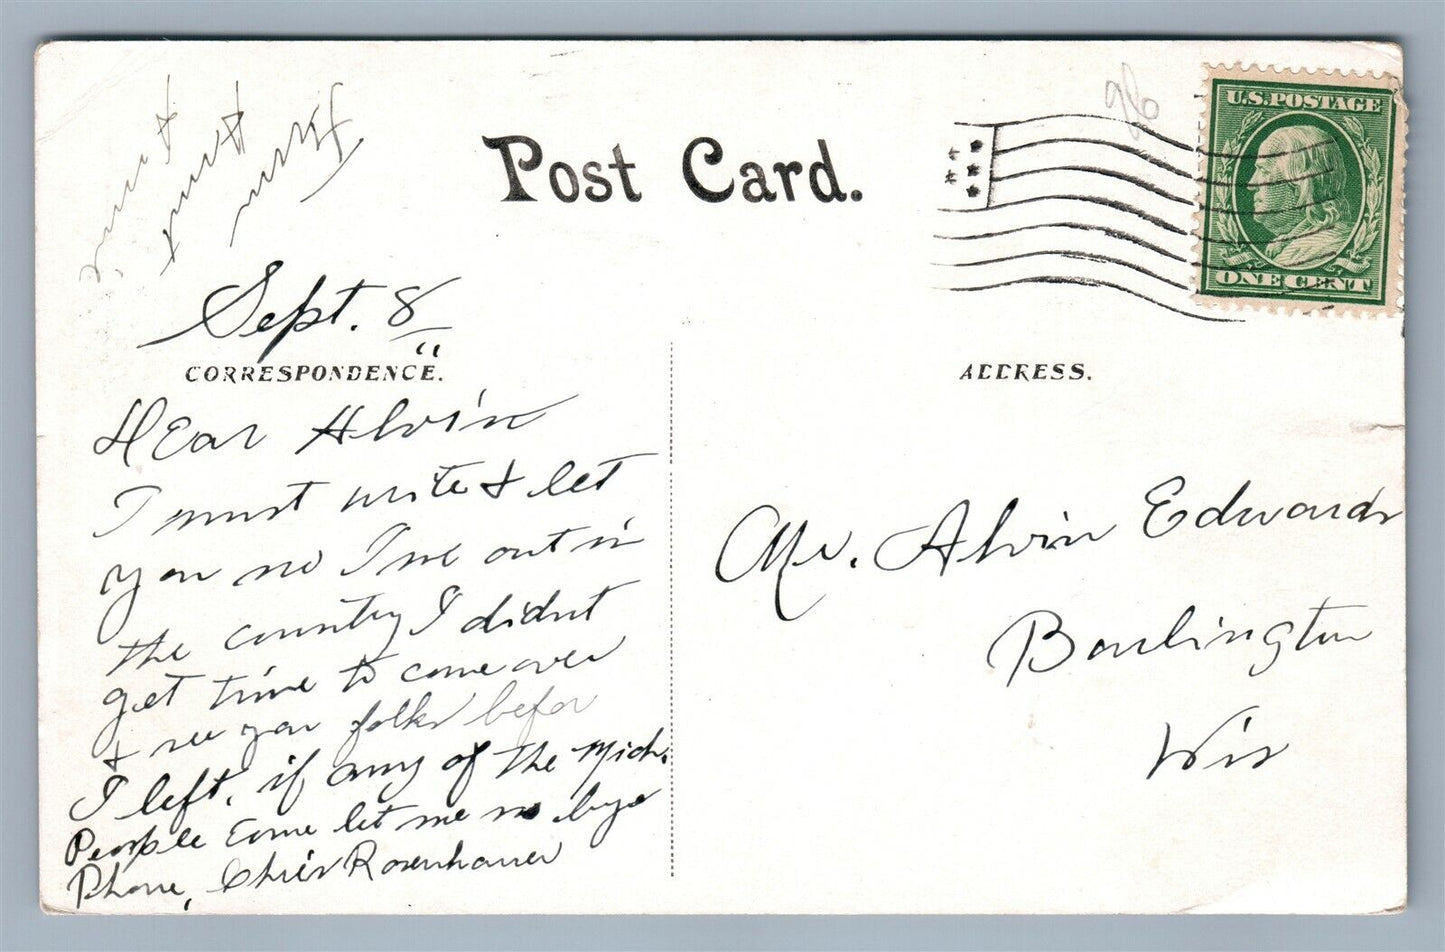 Post Card.
U.S. POSTAGE
ONE CENT
96
From
Aunt
Anna
Sept. 8
"
CORRESPONDENCE.
ADDRESS.
Dear Alvin
I must write & let
you no I me out in
the country I didnt
get time to come over
& see you folks befor
I left, if any of the Mich.
People Come let me no bye
Phone, Chris Rosenhauer
Mr. Alvin Edwards
Bourlington
Wis